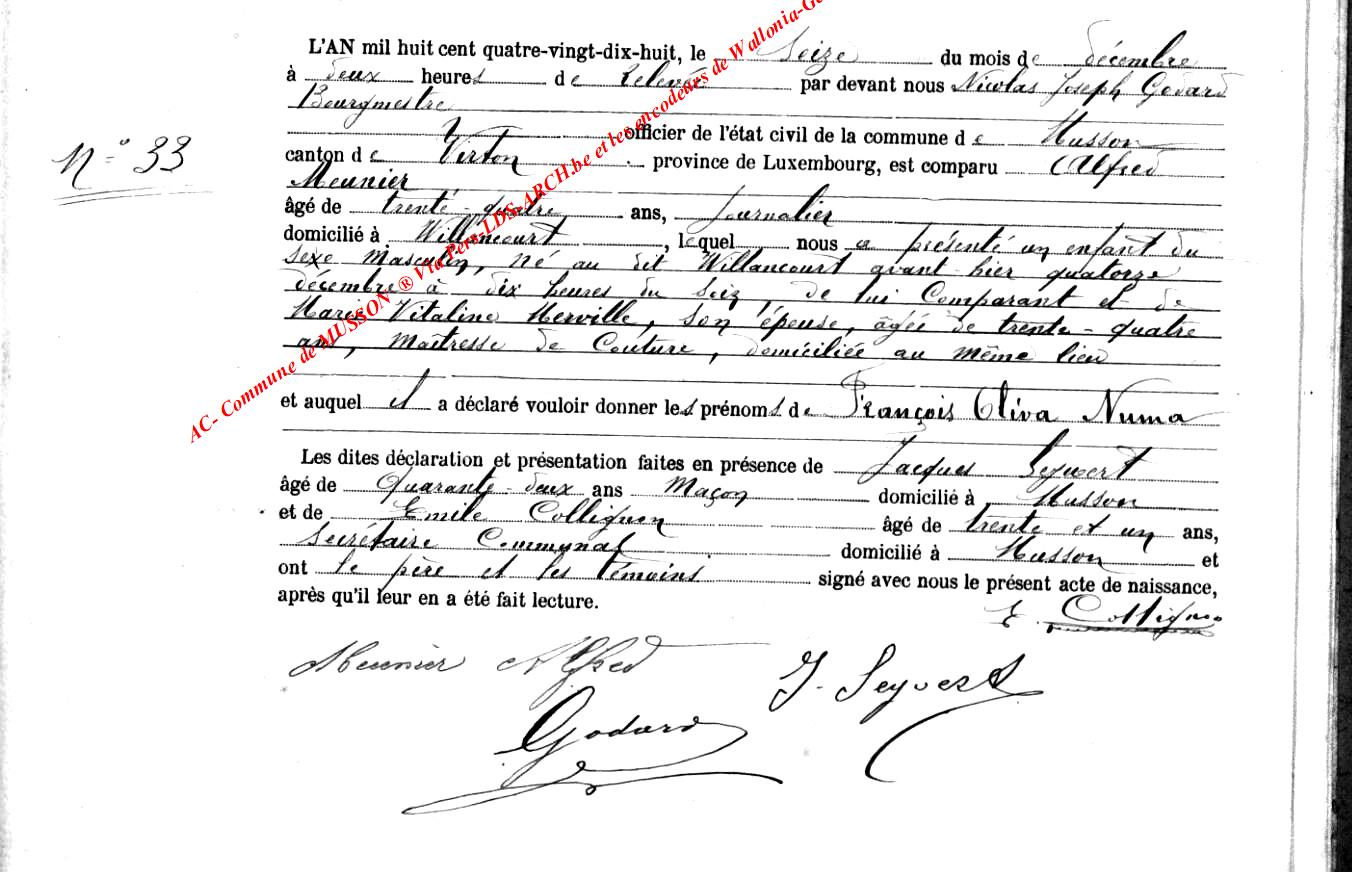 L'AN mil huit cent quatre-vingt-dix-huit, le Seize du mois de décembre
à deux heures de relevée par devant nous Nicolas Joseph Godard
Bourgmestre
officier de l'état civil de la commune de Musson
N° 33
canton de Virton province de Luxembourg, est comparu Alfred
Meunier
âgé de trente-quatre ans, Journalier
domicilié à Willancourt, lequel nous a présenté un enfant du
sexe Masculin, né au dit Willancourt avant-hier quatorze
décembre à dix heures du Soir, de lui Comparant et de
Marie Vitaline Merville, son épouse, âgée de trente-quatre
ans, Maîtresse de Couture, domiciliée au même lieu
et auquel il a déclaré vouloir donner les prénoms de François Oliva Numa
Les dites déclaration et présentation faites en présence de Jacques Seywert
âgé de Quarante-deux ans Maçon domicilié à Musson
et de Emile Collignon âgé de trente et un ans,
Secrétaire Communal domicilié à Musson et
ont le père et les témoins signé avec nous le présent acte de naissance,
après qu'il leur en a été fait lecture.
E. Collignon
Meunier Alfred
J. Seywert
Godard
AC- Commune de MUSSON ® Via Pers-LDS-ARCH.be et les encodeurs de Wallonia-Ge